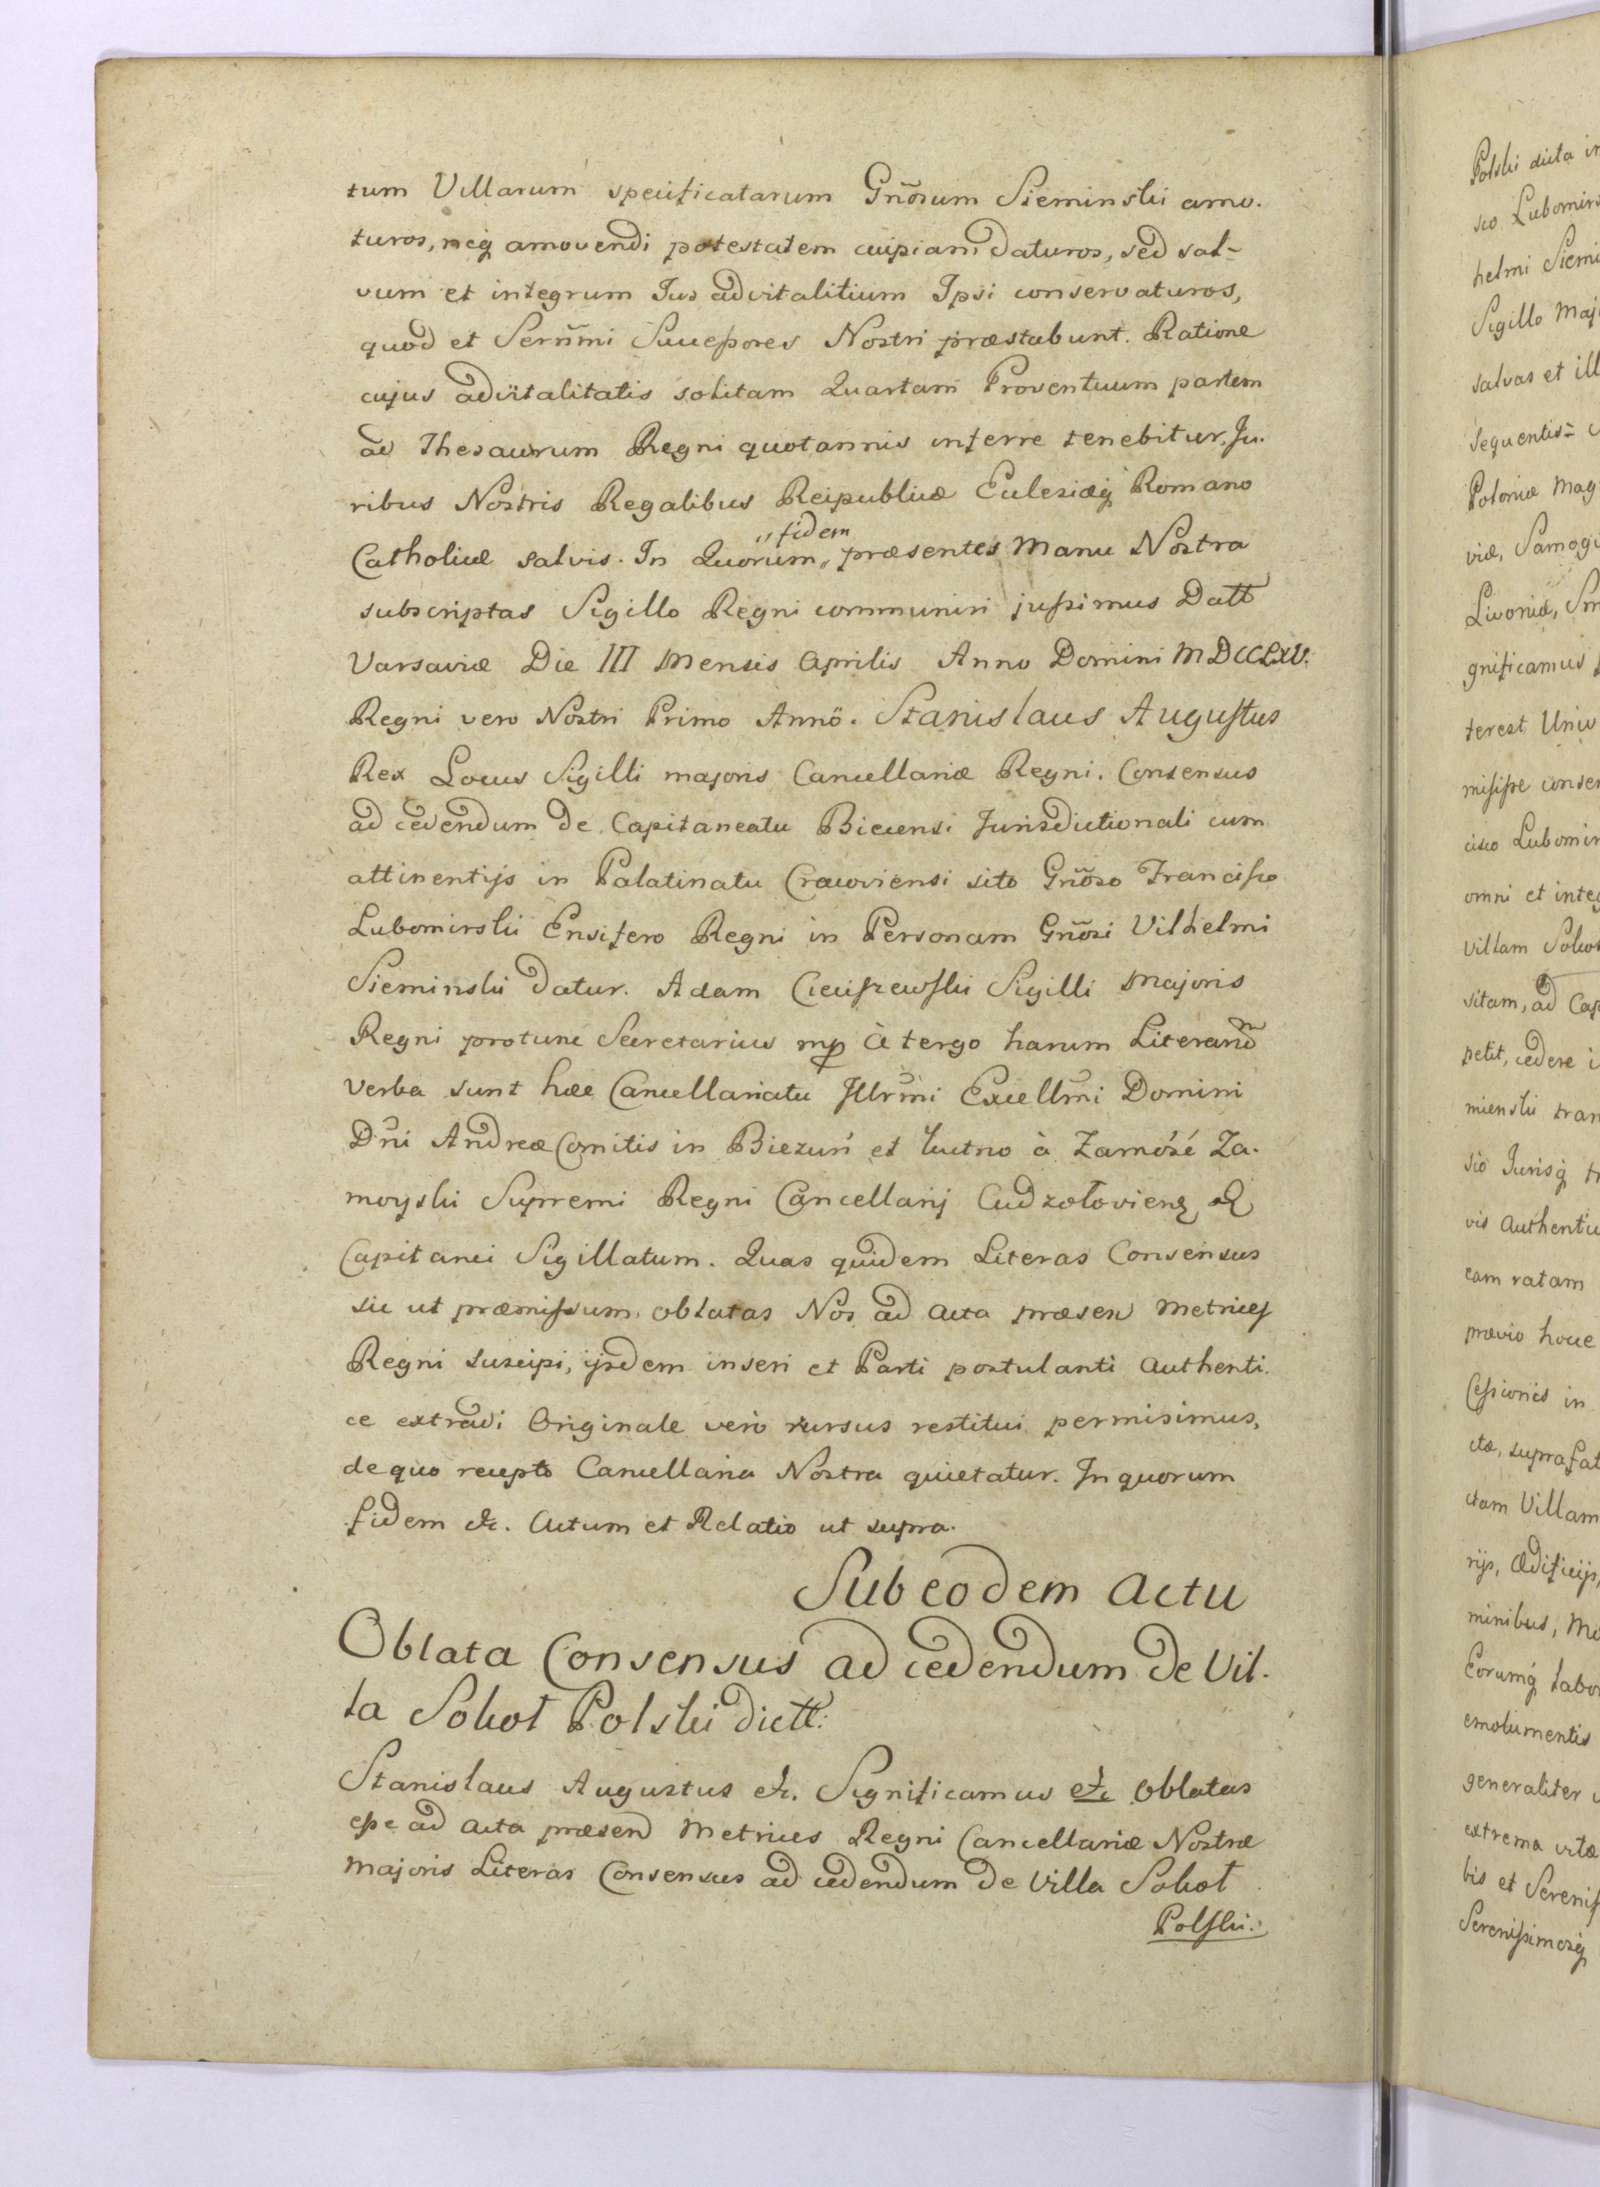 tum Villarum specificatarum Gñosum Sieminski amo.
turos, neq́ amovendi potestatem cuipiam daturos, sed sal-
vum et integrum Jus advitalitium Ipsi conservaturos,
quod et Serñmi Successores Nostri præstabunt. Ratione
cujus advitalitatis solitam Quartam Proventuum partem
ad Thesaurum Regni quotannis inferre tenebitur. Ju.
ribus Nostris Regalibus Reipublicæ Eclesiæq́ Romano
Catholicæ salvis. In Quorum „fidem„ præsentes Manu Nostra
subscriptas Sigillo Regni communiri jussimus Datt
Varsaviæ Die III Mensis Aprilis Anno Domini MDCCLXV.
Regni vero Nostri Primo Anno. Stanislaus Augustus
Rex Locus Sigilli majoris Cancellariæ Regni. Consensus
ad cedendum de Capitaneatu Biecensi Jurisdictionali cum
attinentijs in Palatinatu Cracoviensi sito Gñoso Francisco
Lubomirski Ensifero Regni in Personam Gñosi Vilhelmi
Sieminski datur. Adam Cieciszewski Sigilli Majoris
Regni protunc Secretarius mp à tergo harum Literarum
verba sunt hæc Cancellariatu Jllrm̃i Excellm̃i Domini
Dñi Andreæ Comitis in Biezuń et Kutno à Zamość Za.
moyski Supremi Regni Cancellarij
Capitanei Sigillatum. Quas quidem Literas Consensus
sic ut præmissum oblatas Nos ad Acta præsen Metrices
Regni suscipi, ijsdem inseri et Parti postulanti Authenti.
ce extradi Originale verò rursus restitui permisimus,
de quo recepto Cancellaria Nostra quietatur. In quorum
fidem etc. Actum et Relatio ut supra.
Sub eodem Actu
Oblata Consensus ad cedendum de Vil.
la Sokoł Polski dictt:
Stanislaus Augustus etc. Significamus etc Oblatas
esse ad Acta præsen Metrices Regni Cancellariæ Nostræ
Majoris Literas Consensus ad cedendum de Villa Sokoł
Polski.
Polski dicta in
sco Lubomirs
helmi Siemi
Sigillo Maj
salvas et ill
sequentis
Poloniæ Mag
viæ, Samogi
Livoniæ, Sm
gnificamus
terest Univ
misisse consen
cisco Lubomir
omni et integ
Villam Sokoł
sitam, ad Cap
petit, cedere i
mienski tran
sio Jurisq́ tr
vis Authentic
eam ratam
prævio hocce
Cessionis in
ctæ, suprafat
ctam Villam
rijs, Ædificijs,
minibus, Me
Eorumq́ labor
emolumentis
generaliter
extrema vitæ
bis et Sereniss
Serenissimosq́